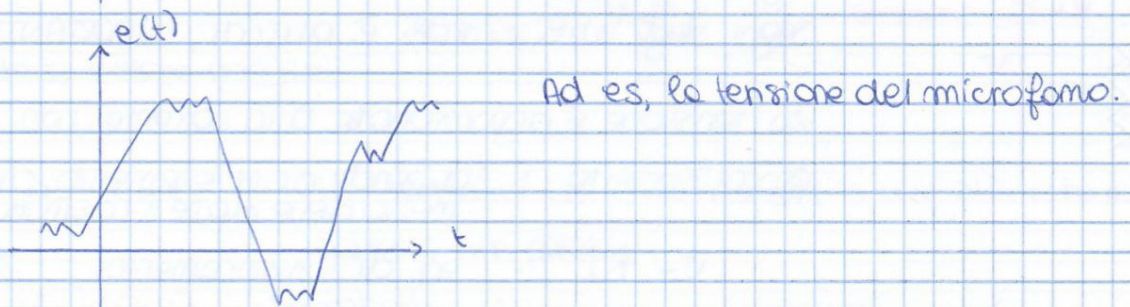 e(t)
Ad es, la tensione del microfono.
t